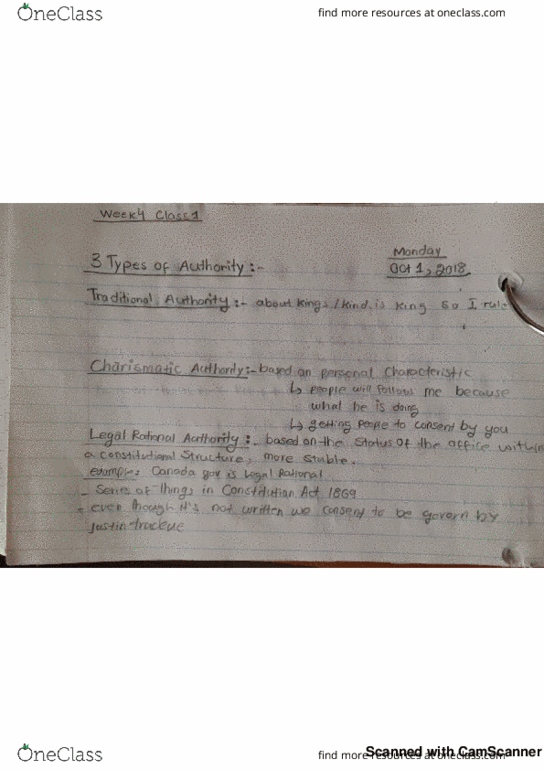 OneClass
find more resources at oneclass.com
Week4 Class1
Monday
Oct 1, 2018
3 Types of Authority :-
Traditional Authority :- about kings / kind is king so I rule
Charismatic Authority :- based on personal characteristic
↳ people will follows me because
what he is doing
↳ getting people to consent by you
Legal Rational Authority :- based on the status of the office within
a constitutional structure, more stable.
example: Canada gov is legal Rational
- Series of things in Constitution Act 1869
- even though it's not written we consent to be govern by
Justin trudeue
OneClass
find more resources at oneclass.com
Scanned with CamScanner